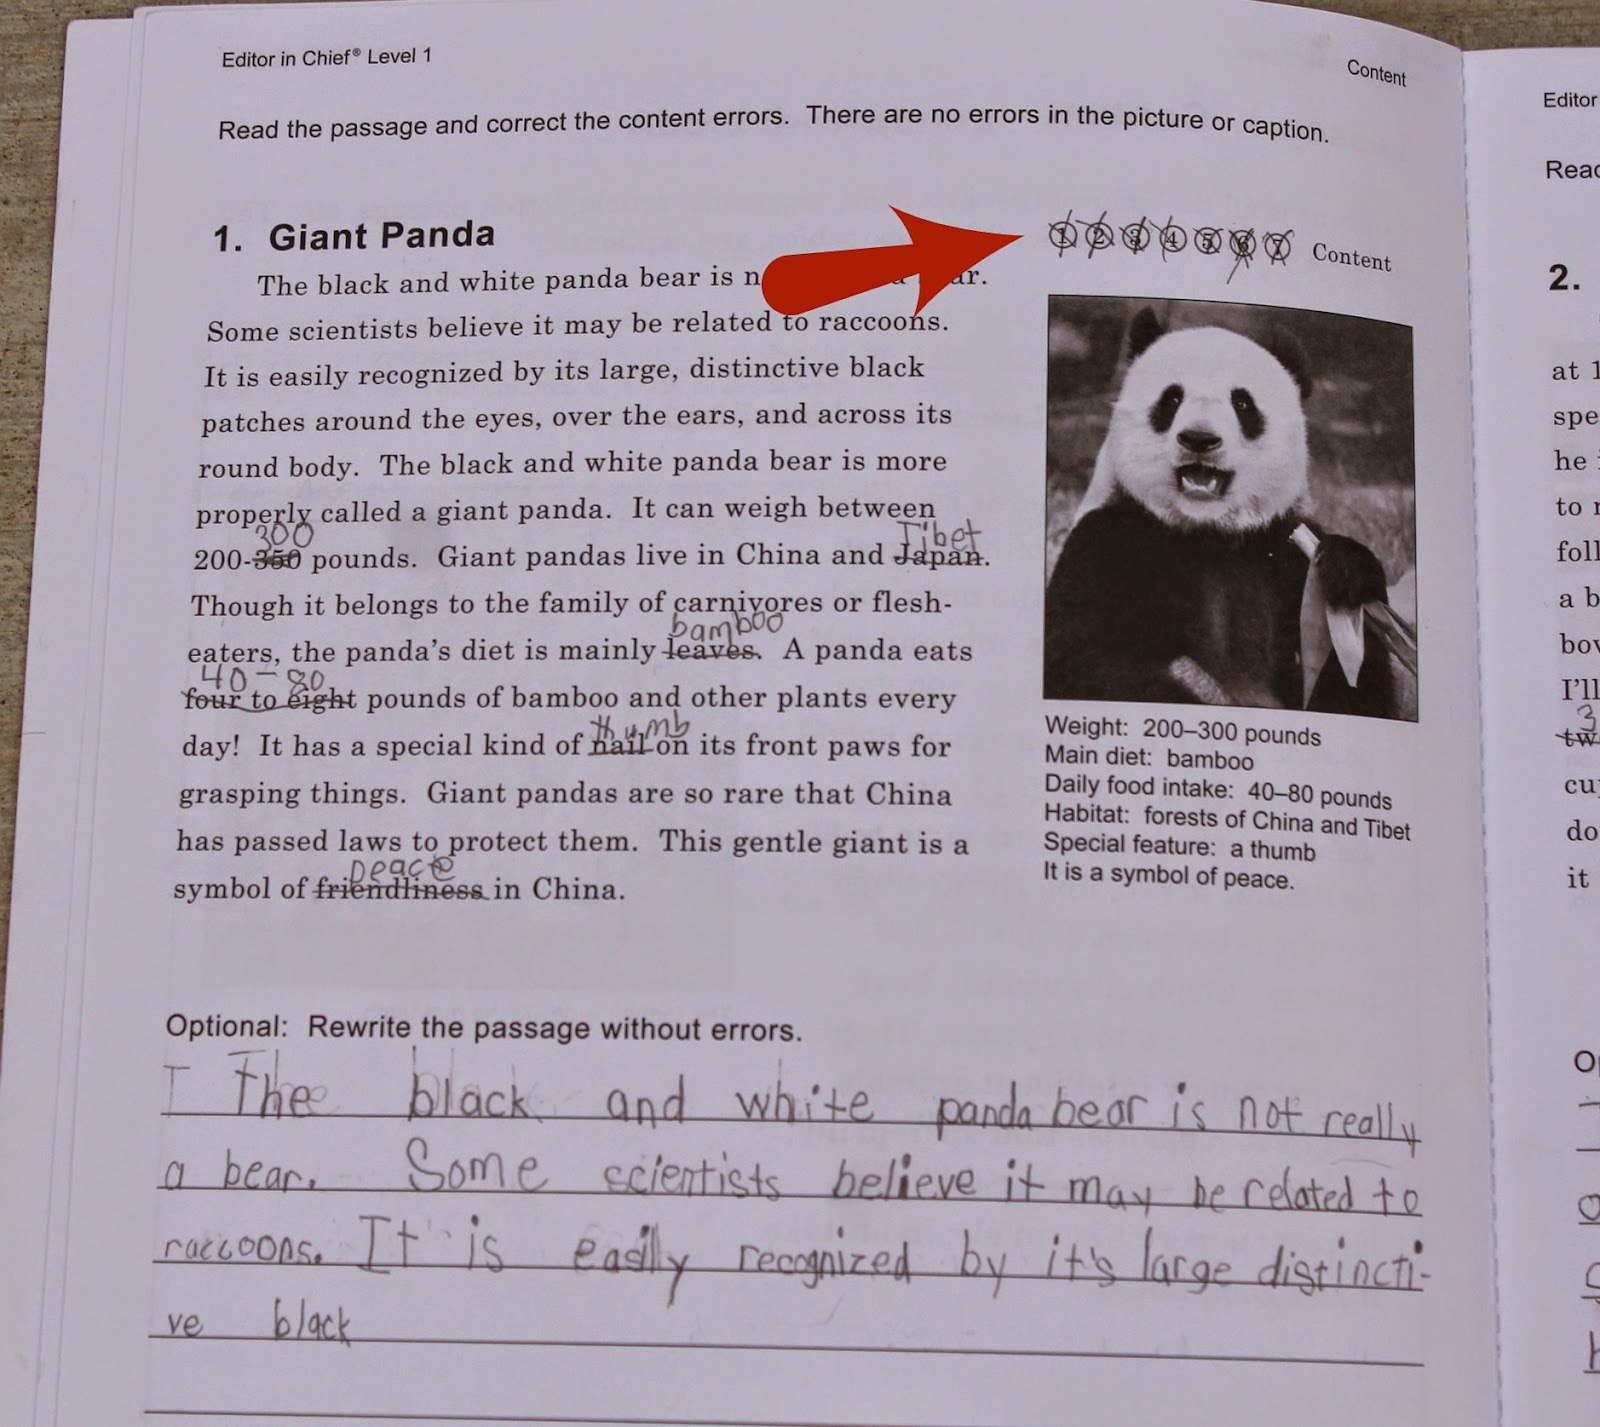 Editor in Chief® Level 1
Content
Read the passage and correct the content errors. There are no errors in the picture or caption.
1. Giant Panda
1 2 3 4 5 6 7 Content
The black and white panda bear is
Some scientists believe it may be related to raccoons.
It is easily recognized by its large, distinctive black
patches around the eyes, over the ears, and across its
round body. The black and white panda bear is more
properly called a giant panda. It can weigh between
300
Tibet
200-350 pounds. Giant pandas live in China and Japan.
Though it belongs to the family of carnivores or flesh-
bamboo
eaters, the panda's diet is mainly leaves. A panda eats
40-80
four to eight pounds of bamboo and other plants every
thumb
day! It has a special kind of nail on its front paws for
grasping things. Giant pandas are so rare that China
has passed laws to protect them. This gentle giant is a
peace
symbol of friendliness in China.
Weight: 200–300 pounds
Main diet: bamboo
Daily food intake: 40–80 pounds
Habitat: forests of China and Tibet
Special feature: a thumb
It is a symbol of peace.
Optional: Rewrite the passage without errors.
The black and white panda bear is not really
a bear. Some scientists believe it may be related to
raccoons. It is easily recognized by it's large distincti-
ve black
Editor
Read
2.
at 1
spe
he
to
foll
a b
bov
I'll
3
tw
cu
do
it